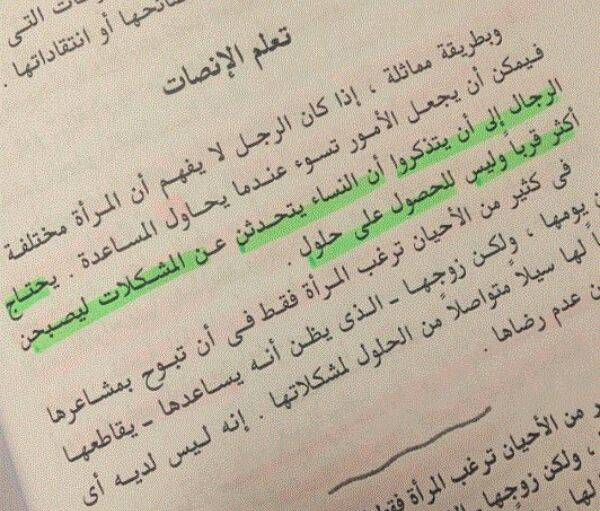 ائحها أو انتقاداتها .
تعلم الإنصات
وبطريقة مماثلة ، إذا كان الرجل لا يفهم أن المرأة مختلفة
فيمكن أن يجعل الأمور تسوء عندما يحاول المساعدة . يحتاج
الرجال إلى أن يتذكروا أن النساء يتحدثن عن المشكلات ليصبحن
أكثر قرباً وليس للحصول على حلول .
فى كثير من الأحيان ترغب المرأة فقط فى أن تبوح بمشاعرها
يومها ، ولكن زوجها ـ الذى يظن أنه يساعدها ـ يقاطعها
لها سيلاً متواصلاً من الحلول لمشكلاتها . إنه ليس لديه أى
عدم رضاها .
من الأحيان ترغب المرأة فقط
، ولكن زوجها ـ الذ
لها